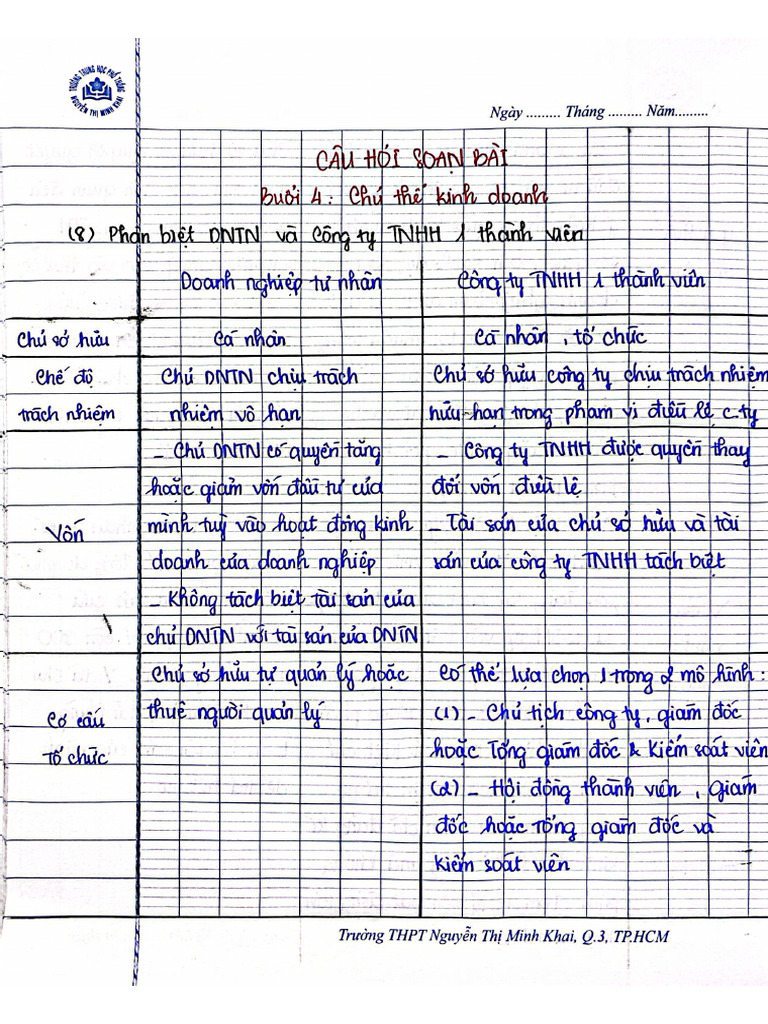 TRƯỜNG TRUNG HỌC PHỔ THÔNG
NGUYỄN THỊ MINH KHAI
Ngày ......... Tháng ......... Năm.........
CÂU HỎI SOẠN BÀI
Buổi 4: Chủ thể kinh doanh
(8) Phân biệt DNTN và Công ty TNHH 1 thành viên
Doanh nghiệp tư nhân
Công ty TNHH 1 thành viên
Chủ sở hữu
Cá nhân
Cá nhân, tổ chức
Chế độ
trách nhiệm
Chủ DNTN chịu trách
nhiệm vô hạn
Chủ sở hữu công ty chịu trách nhiệm
hữu hạn trong phạm vi điều lệ c.ty
Vốn
- Chủ DNTN có quyền tăng
hoặc giảm vốn đầu tư của
mình tuỳ vào hoạt động kinh
doanh của doanh nghiệp
- Không tách biệt tài sản của
chủ DNTN với tài sản của DNTN
- Công ty TNHH được quyền thay
đổi vốn điều lệ
- Tài sản của chủ sở hữu và tài
sản của công ty TNHH tách biệt
Cơ cấu
tổ chức
Chủ sở hữu tự quản lý hoặc
thuê người quản lý
Có thể lựa chọn 1 trong 2 mô hình:
(1) - Chủ tịch công ty, giám đốc
hoặc Tổng giám đốc & Kiểm soát viên
(2) - Hội động thành viên, Giám
đốc hoặc Tổng giám đốc và
Kiểm soát viên
Trường THPT Nguyễn Thị Minh Khai, Q.3, TP.HCM